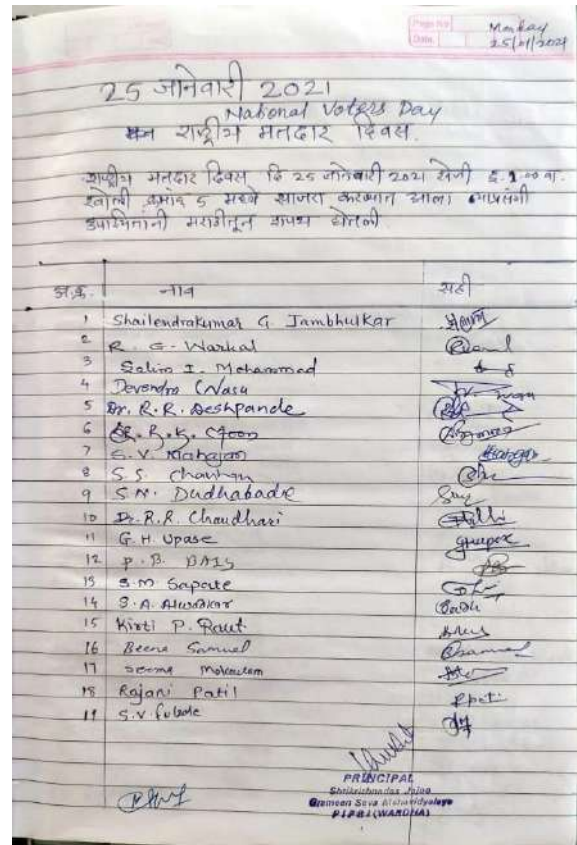 Page No.
Date
Monday
25/01/2021
25 जानेवारी 2021
National Voters Day
राष्ट्रीय मतदार दिवस.
राष्ट्रीय मतदार दिवस दि 25 जानेवारी 2021 रोजी दु. 1.00 वा.
खोली क्रमांक 5 मध्ये साजरा करण्यात आला त्याप्रसंगी
उपस्थितांनी मराठीतून शपथ घेतली
अ.क्र. नाव सही
1 Shailendrakumar G. Jambhulkar
2 R. G. Warkal
3 Salim I. Mohammad
4 Devendra
5 Dr. R. R. Deshpande
6 R. K.
7 S. V. Mahajan
8 S. S. Chavhan
9 S. N. Dudhabade
10 Dr. R. R. Chaudhari
11 G. H. Upase
12 P. B. BAIS
13 S. M Sapate
14 S. A.
15 Kirti P. Raut
16 Beena Samuel
17 Seema
18 Rajani Patil
19 S. V.
PRINCIPAL
Shrikrishnadas Jajoo
Grameen Seva Mahavidyalaya
PIPRI (WARDHA)